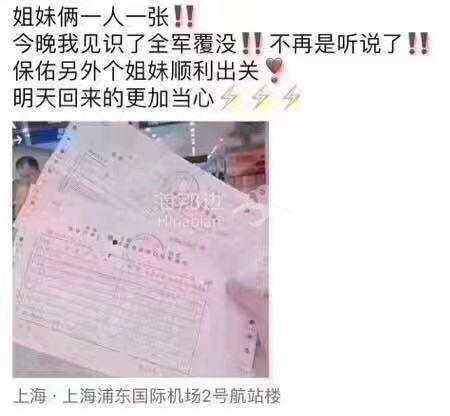 姐妹俩一人一张‼️
今晚我见识了全军覆没‼️不再是听说了‼️
保佑另外个姐妹顺利出关❣️
明天回来的更加当心⚡⚡⚡
海那边
Hinabian
上海·上海浦东国际机场2号航站楼